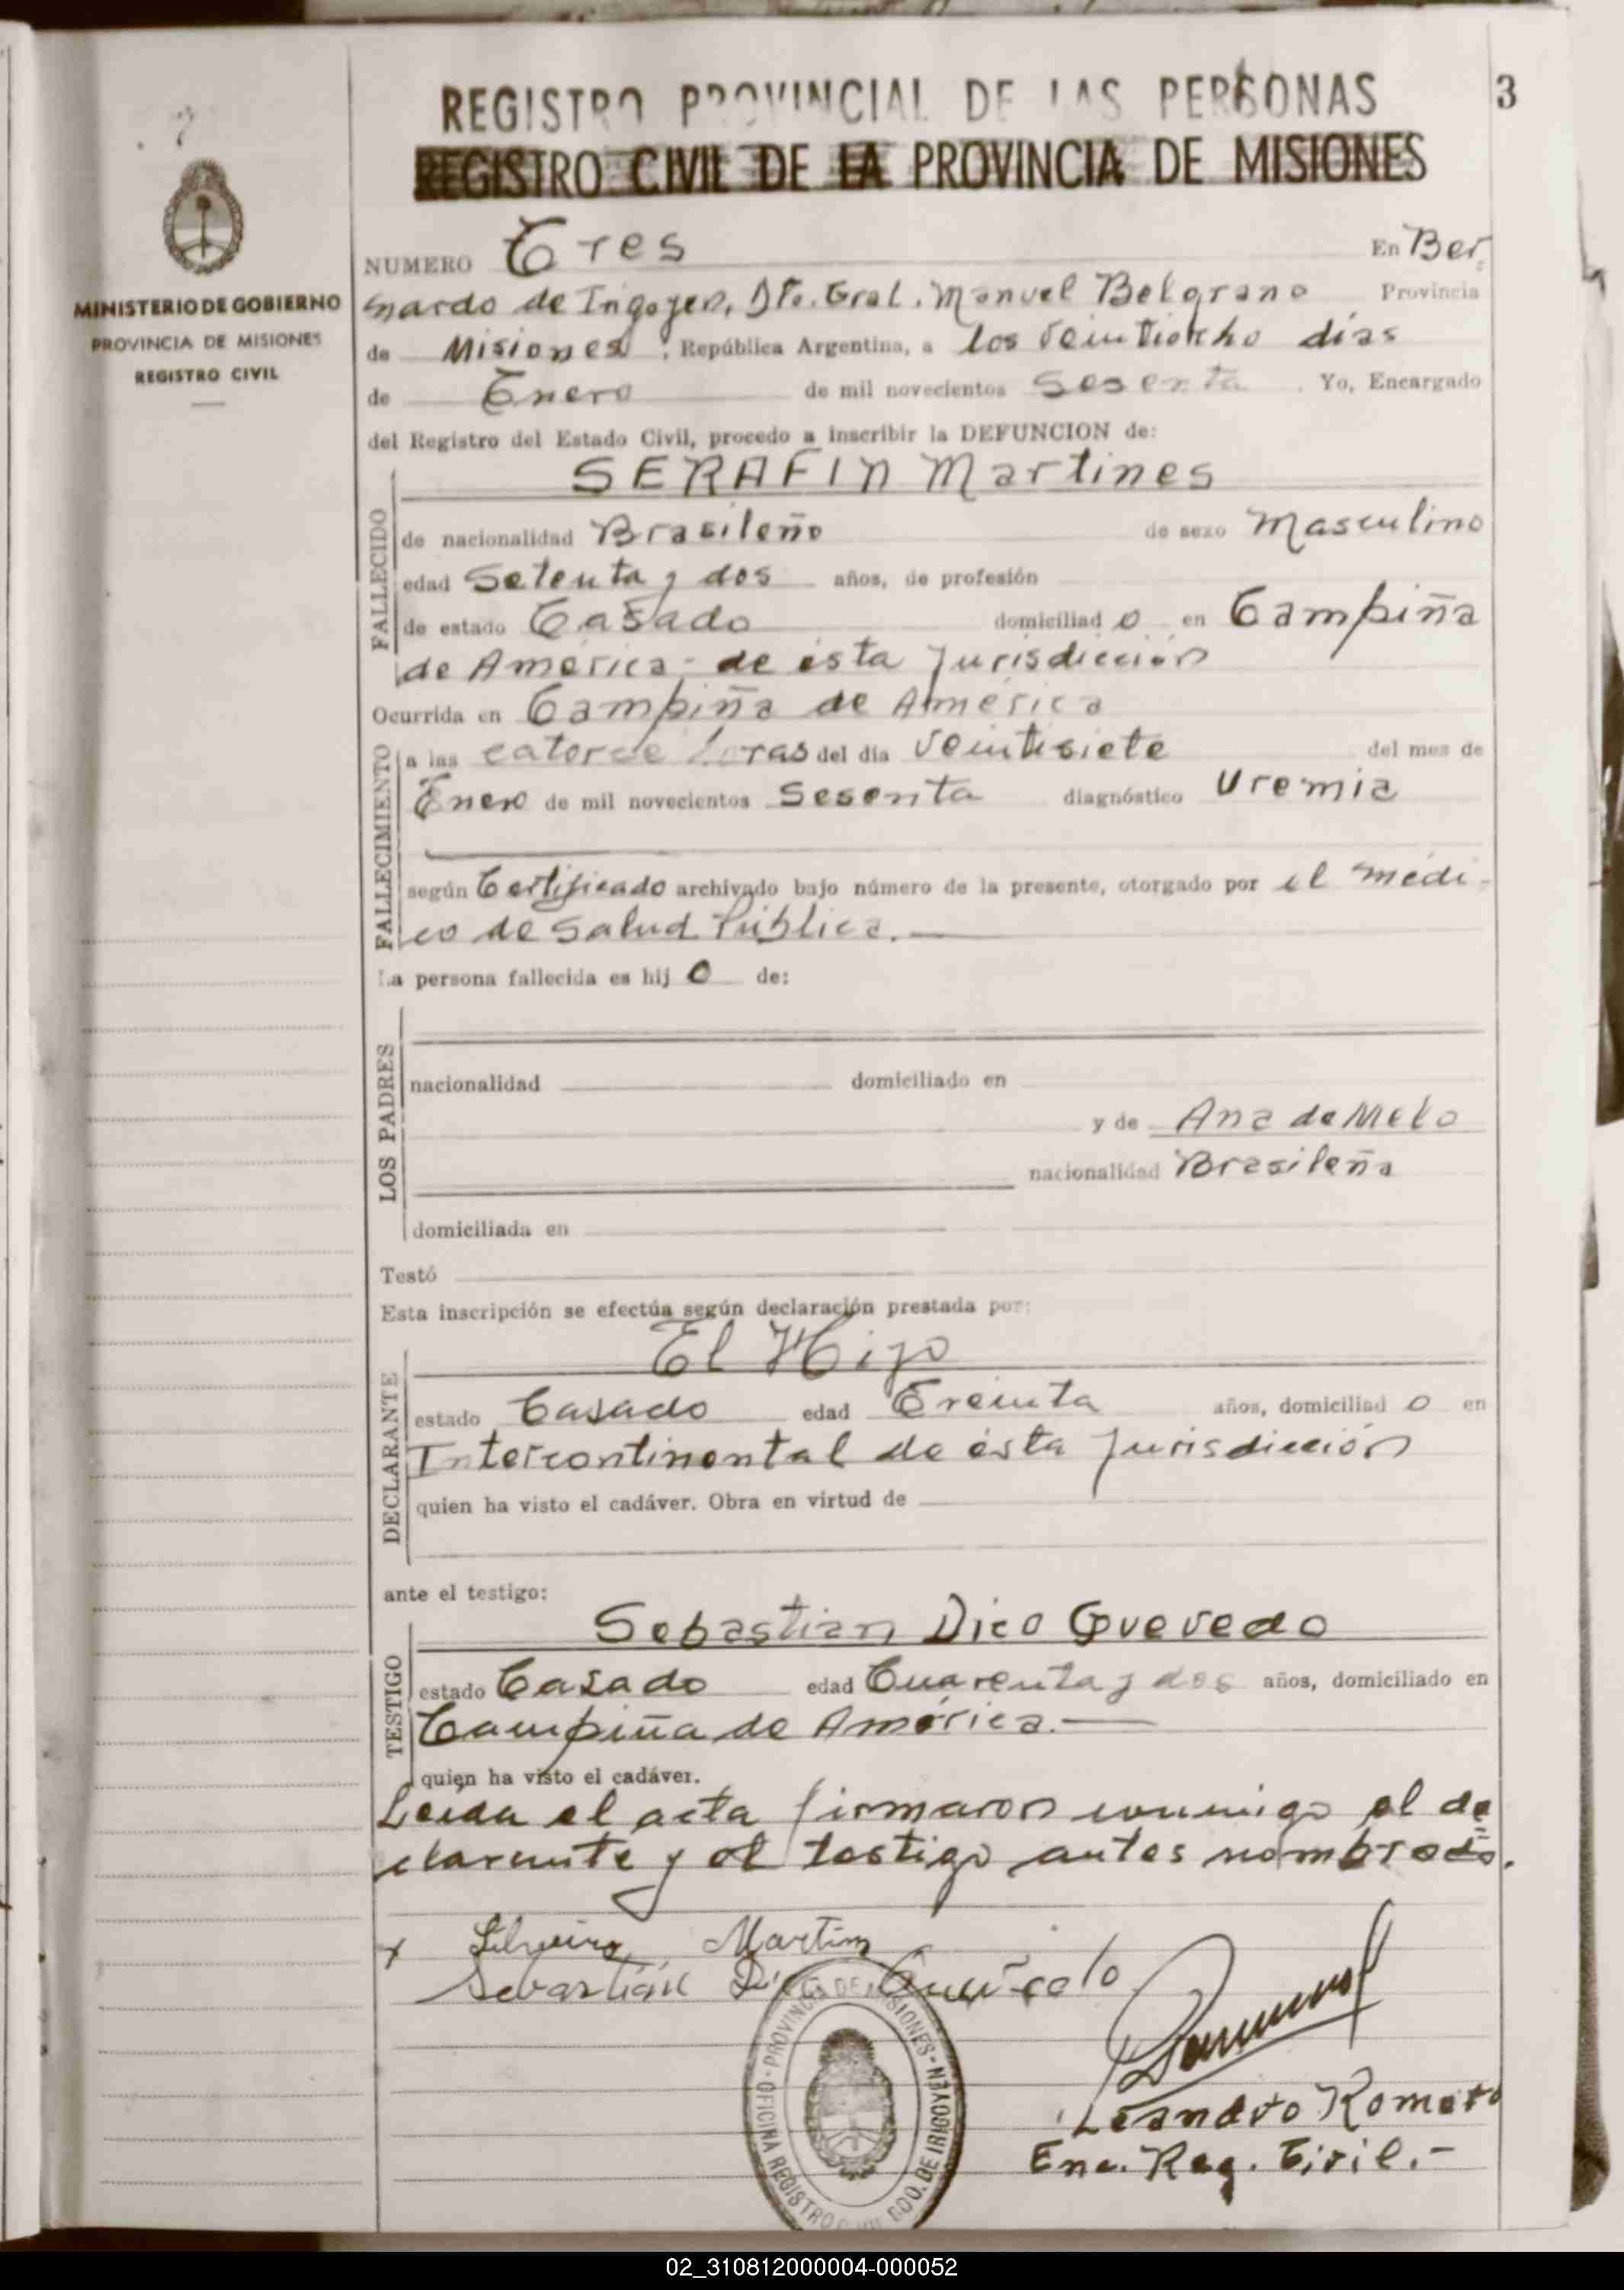 REGISTRO PROVINCIAL DE LAS PERSONAS
3
REGISTRO CIVIL DE LA PROVINCIA DE MISIONES
MINISTERIO DE GOBIERNO
PROVINCIA DE MISIONES
REGISTRO CIVIL
NUMERO Tres En Ber
nardo de Irigoyen, Dto. Gral. Manuel Belgrano Provincia
de Misiones, República Argentina, a los veintiocho días
de Enero de mil novecientos Sesenta. Yo, Encargado
del Registro del Estado Civil, procedo a inscribir la DEFUNCION de:
FALLECIDO
SERAFIN Martines
de nacionalidad Brasileño de sexo Masculino
edad Setenta y dos años, de profesión
de estado Casado domiciliado en Campiña
de América, de ésta Jurisdicción
Ocurrida en Campiña de América
FALLECIMIENTO
a las catorce horas del día veintisiete del mes de
Enero de mil novecientos Sesenta diagnóstico Uremia
según Certificado archivado bajo número de la presente, otorgado por el médi-
co de Salud Pública.
La persona fallecida es hijo de:
LOS PADRES
nacionalidad domiciliado en
y de Ana de Melo
nacionalidad Brasileña
domiciliada en
Testó
Esta inscripción se efectúa según declaración prestada por:
DECLARANTE
El Hijo
estado Casado edad Treinta años, domiciliado en
Intercontinental de ésta Jurisdicción
quien ha visto el cadáver. Obra en virtud de
ante el testigo:
TESTIGO
Sebastian Dico Quevedo
estado Casado edad Cuarenta y dos años, domiciliado en
Campiña de América.
quien ha visto el cadáver.
Leida el acta firmaron conmigo el de
clarante y el testigo antes nombrado.
x Silveira Martim
Sebastián
OFICINA REGISTRO CIVIL BDO. DE IRIGOYEN - PROVINCIA DE MISIONES
Leandro Romero
Enc. Reg. Civil.-
02_310812000004-000052